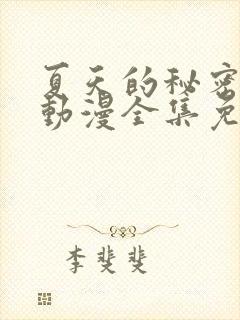 夏天的秘密
動漫全集免
李斐斐